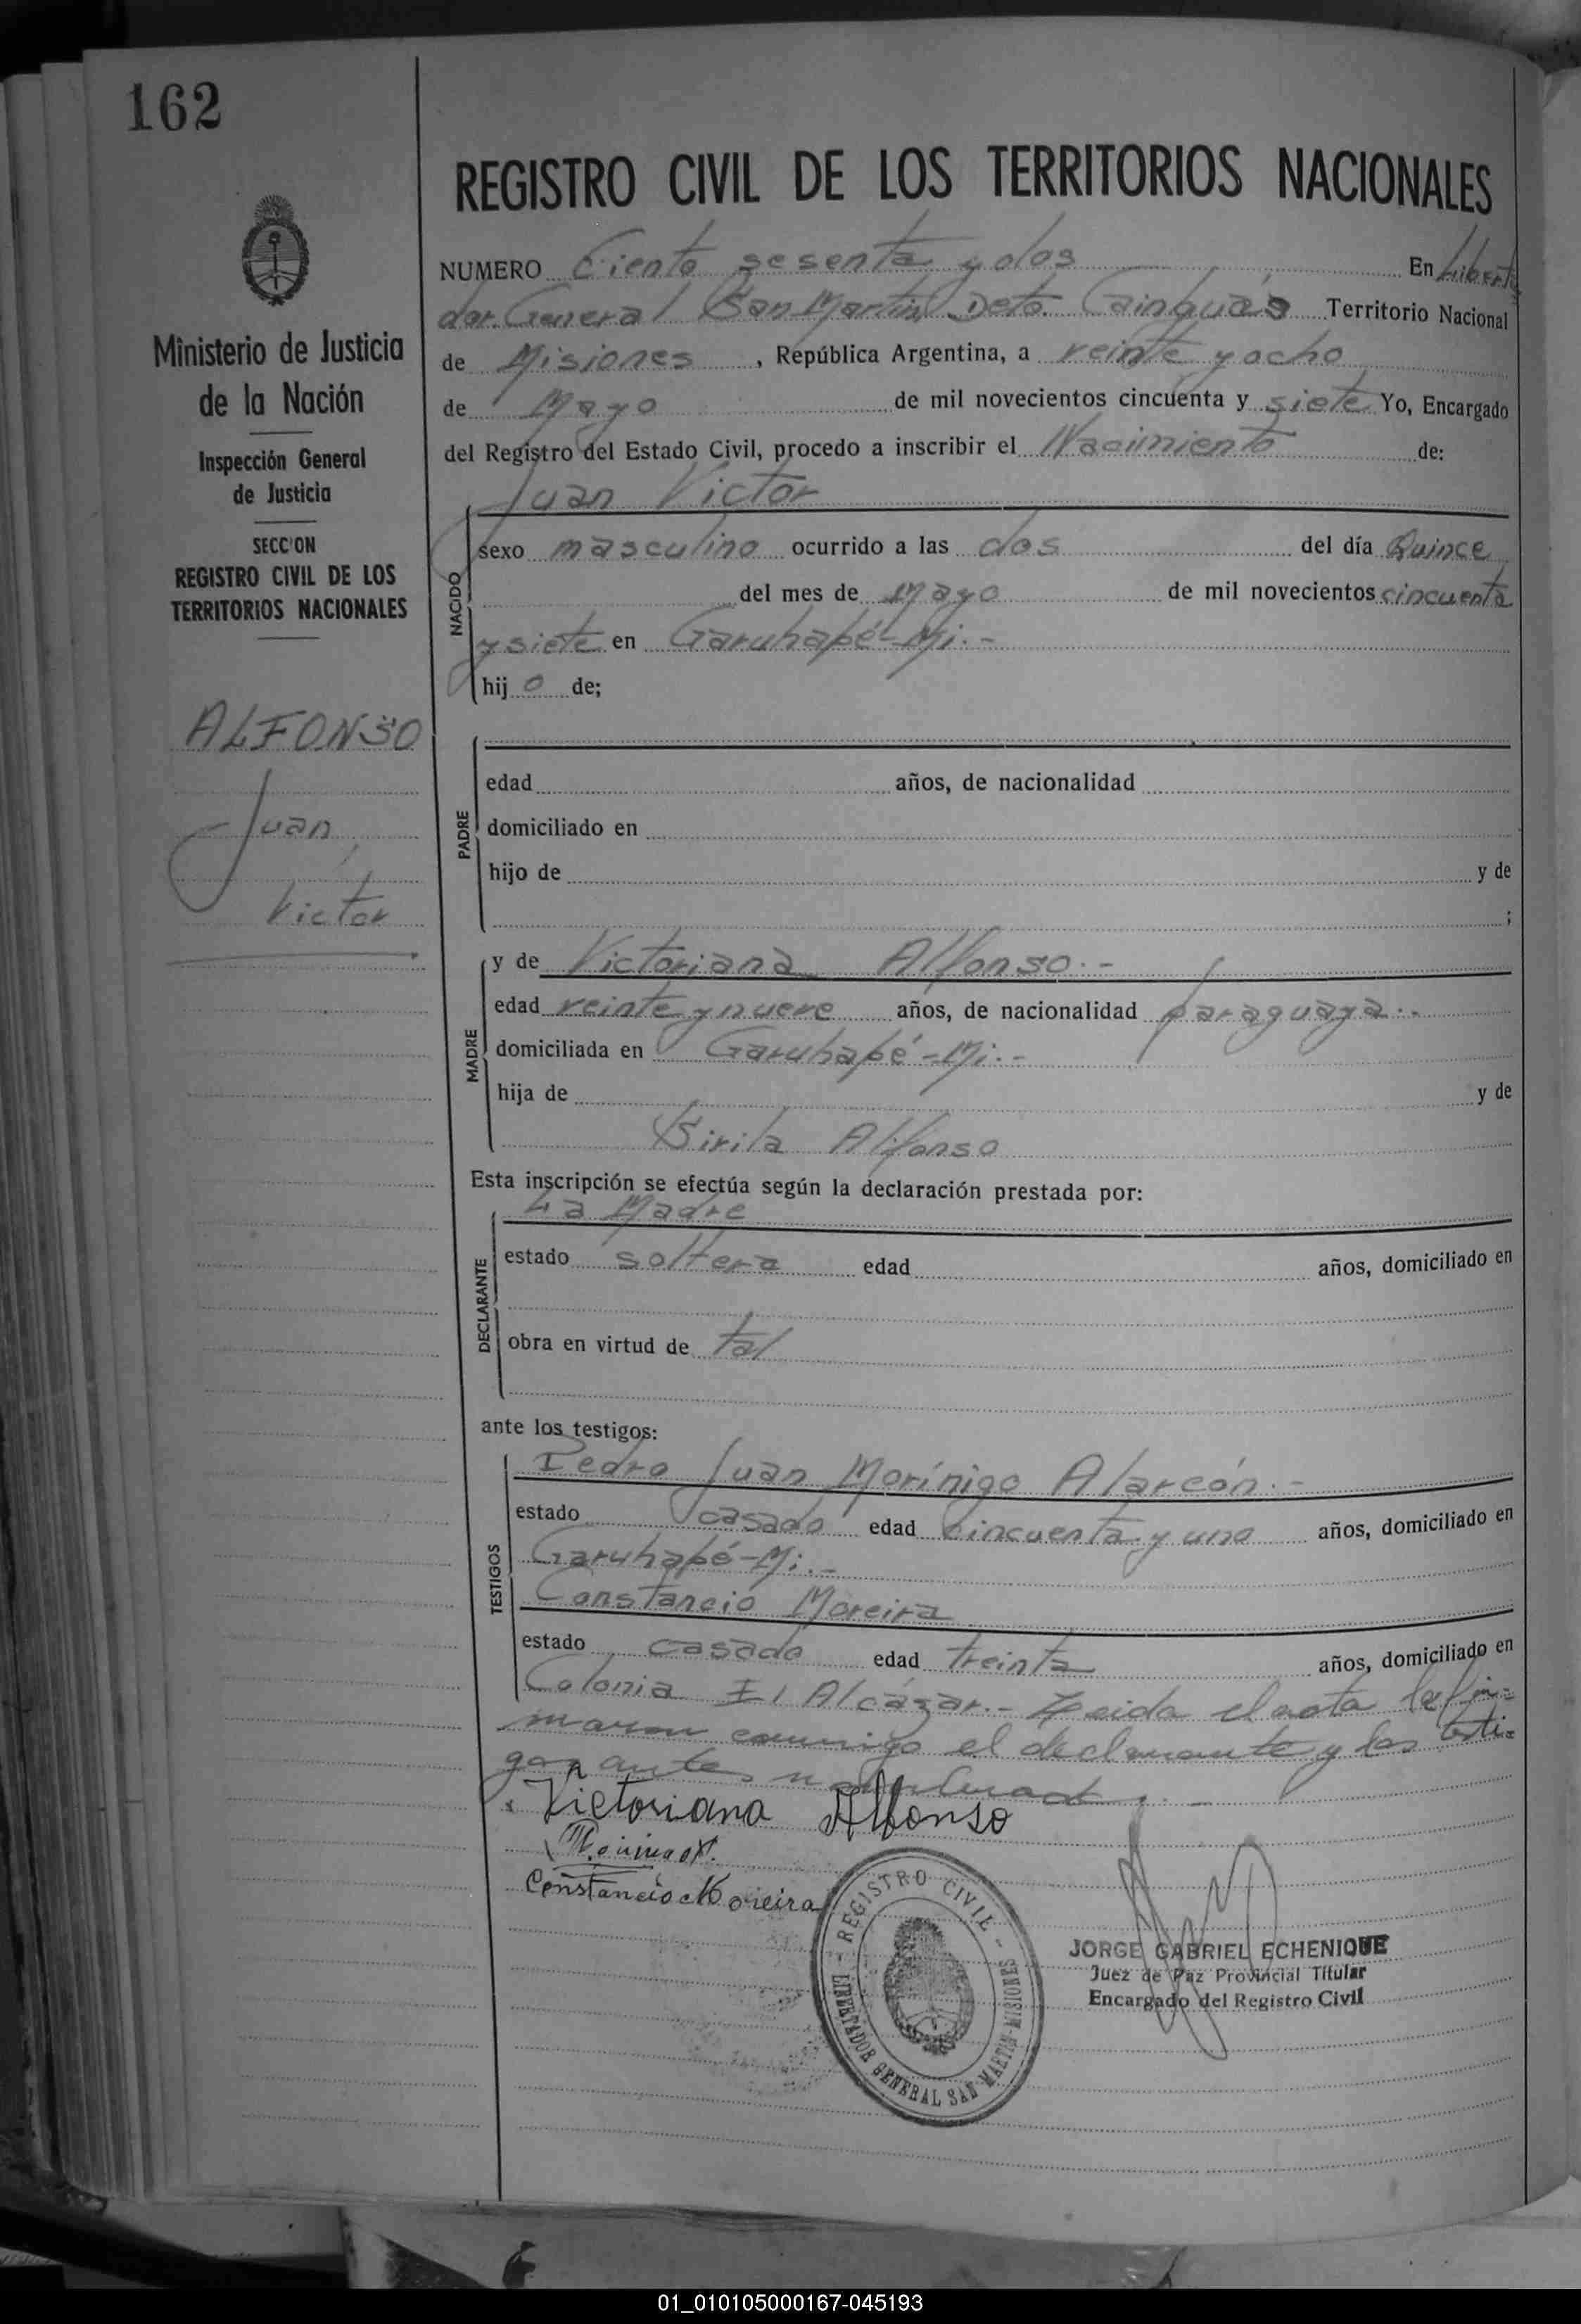 162
REGISTRO CIVIL DE LOS TERRITORIOS NACIONALES
Ministerio de Justicia
de la Nación
Inspección General
de Justicia
SECC'ON
REGISTRO CIVIL DE LOS
TERRITORIOS NACIONALES
ALFONSO
Juan
Victor
NUMERO Ciento sesenta y dos En Liberta
dor. General San Martin, Dpto. Cainguás Territorio Nacional
de Misiones, República Argentina, a veinte y ocho
de Mayo de mil novecientos cincuenta y siete Yo, Encargado
del Registro del Estado Civil, procedo a inscribir el Nacimiento de:
Juan Victor
NACIDO
sexo masculino ocurrido a las dos del día Quince
del mes de Mayo de mil novecientos cincuenta
y siete en Garuhapé-Mi.-
hijo de;
PADRE
edad años, de nacionalidad
domiciliado en
hijo de y de
;
MADRE
y de Victoriana Alfonso.-
edad veinte y nueve años, de nacionalidad paraguaya.-
domiciliada en Garuhapé-Mi.-
hija de y de
Sirila Alfonso
Esta inscripción se efectúa según la declaración prestada por:
La Madre
DECLARANTE
estado soltera edad años, domiciliado en
obra en virtud de tal
ante los testigos:
TESTIGOS
Pedro Juan Morínigo Alarcón.-
estado casado edad cincuenta y uno años, domiciliado en
Garuhapé-Mi.-
Constancio Moreira
estado casado edad treinta años, domiciliado en
Colonia El Alcázar.- Leida el acta la fir=
maron conmigo el declarante y los testi=
gos antes
Victoriana Alfonso
Constancio Moreira
REGISTRO CIVIL
LIBERTADOR GENERAL SAN MARTIN-MISIONES
JORGE GABRIEL ECHENIQUE
Juez de Paz Provincial Titular
Encargado del Registro Civil
01_010105000167-045193